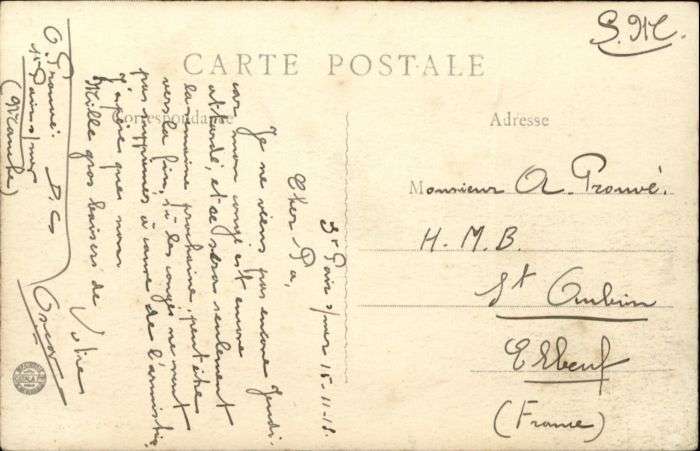 CARTE POSTALE
S.M.
Correspondance
Adresse
St Pair s/mer 15-11-18.
Cher Pa,
Je ne viens pas encore Jeudi.
car mon congé est encore
attardé, et ce sera seulement
la semaine prochaine, peut être
vers la fin, si les congés ne sont
pas supprimés à cause de l'armistice
J'espère que non
Mille gros baisers de
Votre
Oscar
O. Prouvé. D.C
St Pair s/mer
(Manche)
Monsieur A. Prouvé.
H.M.B.
St Aubin
Elbeuf
(France)